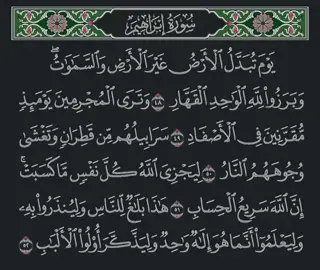 سُورَةُ إِبْرَاهِيم
يَوْمَ تُبَدَّلُ ٱلْأَرْضُ غَيْرَ ٱلْأَرْضِ وَٱلسَّمَٰوَٰتُۖ
وَبَرَزُوا۟ لِلَّهِ ٱلْوَٰحِدِ ٱلْقَهَّارِ ٤٨ وَتَرَى ٱلْمُجْرِمِينَ يَوْمَئِذٍ
مُّقَرَّنِينَ فِى ٱلْأَصْفَادِ ٤٩ سَرَابِيلُهُم مِّن قَطِرَانٍ وَتَغْشَىٰ
وُجُوهَهُمُ ٱلنَّارُ ٥٠ لِيَجْزِىَ ٱللَّهُ كُلَّ نَفْسٍ مَّا كَسَبَتْۚ
إِنَّ ٱللَّهَ سَرِيعُ ٱلْحِسَابِ ٥١ هَٰذَا بَلَٰغٌ لِّلنَّاسِ وَلِيُنذَرُوا۟ بِهِۦ
وَلِيَعْلَمُوٓا۟ أَنَّمَا هُوَ إِلَٰهٌ وَٰحِدٌ وَلِيَذَّكَّرَ أُو۟لُوا۟ ٱلْأَلْبَٰبِ ٥٢